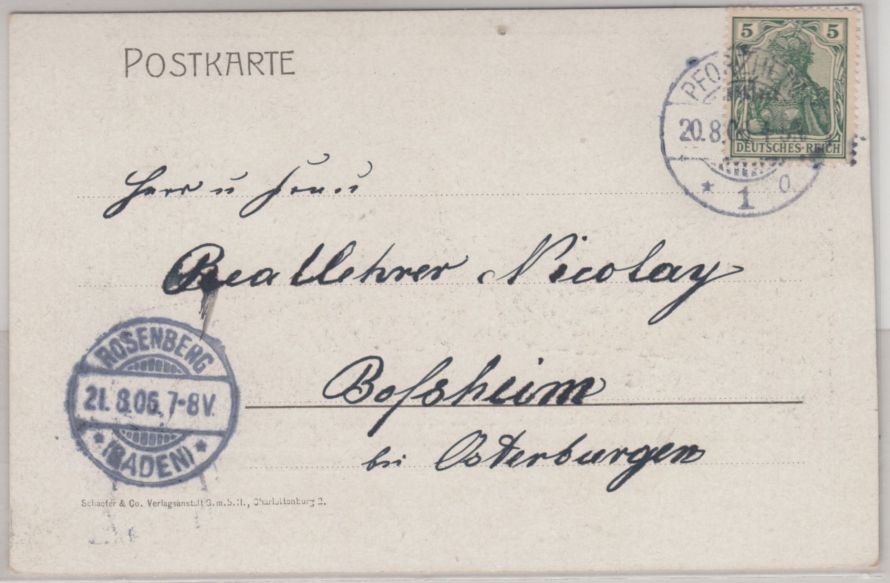 POSTKARTE
5 5
DEUTSCHES REICH
PFORZHEIM
20.8.06
* 1
Herr u Frau
Reallehrer Nicolay
Bofsheim
bei Osterburgen
ROSENBERG
21.8.06.7-8V.
* (BADEN) *
Schaefer & Co. Verlagsanstalt G.m.b.H., Charlottenburg 2.